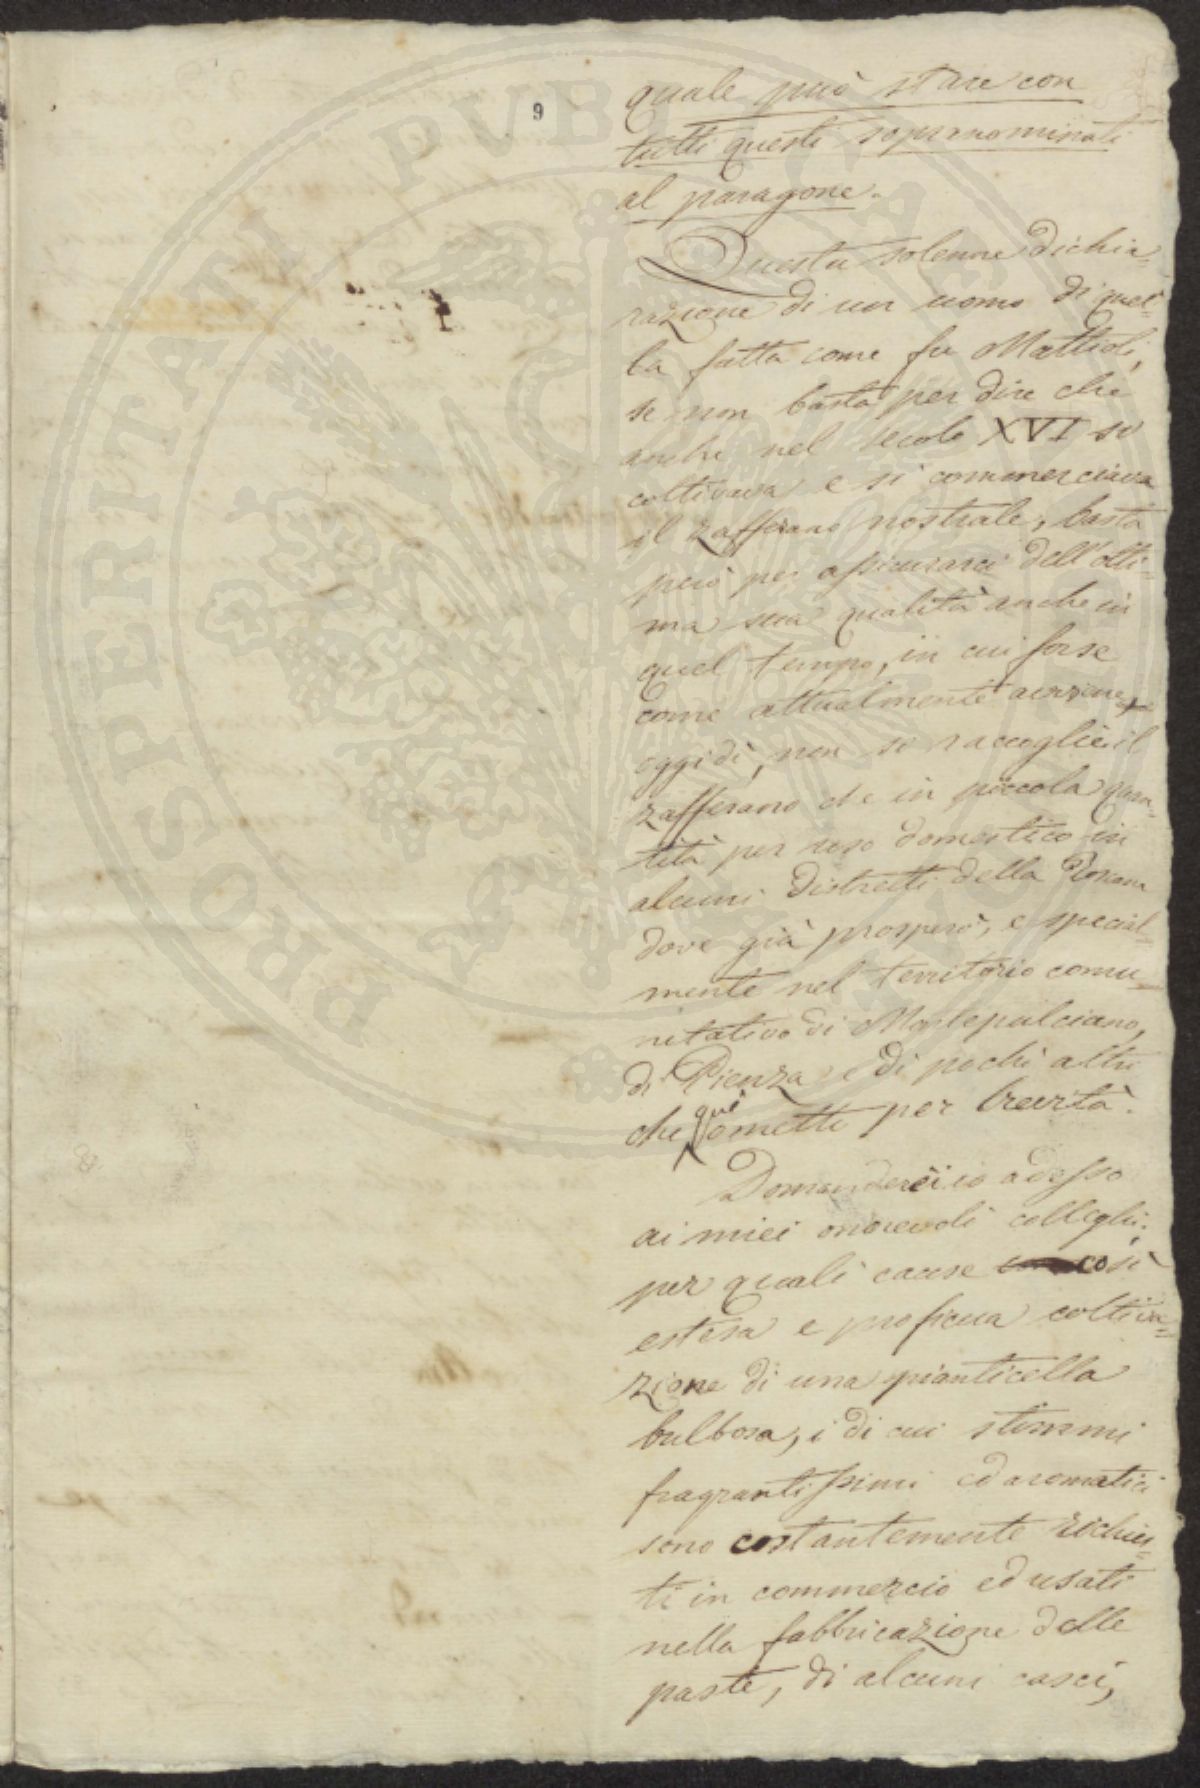 9
quale può stare con
tutti questi sopranominati
al paragone.
Questa solenne dichia=
razione di un uomo di quel=
la fatta come fu Mattioli,
se non basta per dire che
anche nel secolo XVI si
coltivava e si commerciava
il zafferano nostrale, basta
però per assicurarci dell'otti=
ma sua qualità anche in
quel tempo, in cui forse
come attualmente avviene
oggidì, non si raccoglie il
zafferano che in piccola quan=
tità per uso domestico in
alcuni distretti della Toscana
dove già prosperò, e special=
mente nel territorio comu=
nitativo di Montepulciano,
di Pienza e di pochi altri
che quì ometto per brevità.
Domanderei io adesso
ai miei onorevoli colleghi:
per quali cause così
estesa e proficua coltiva=
zione di una pianticella
bulbosa, i di cui stimmi
fragrantissimi ed aromatici
sono costantemente richies=
ti in commercio ed usati
nella fabbricazione delle
paste, di alcuni casci,
PROSPERITATI PVBLICAE